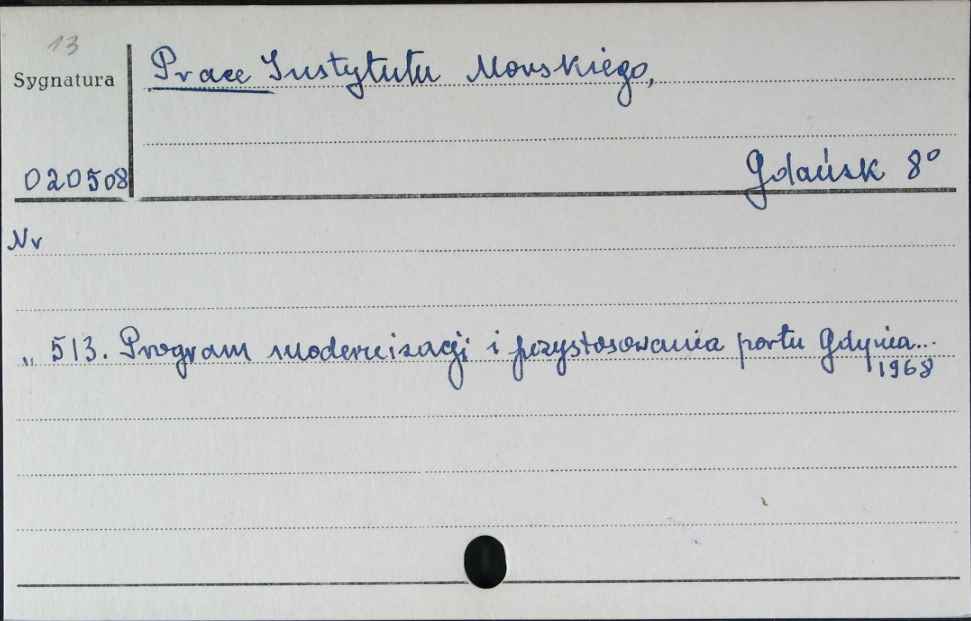 13
Sygnatura
Prace Instytutu Morskiego,
020508
Gdańsk 8°
Nr
„ 513. Program modernizacji i przystosowania portu Gdynia...
1968